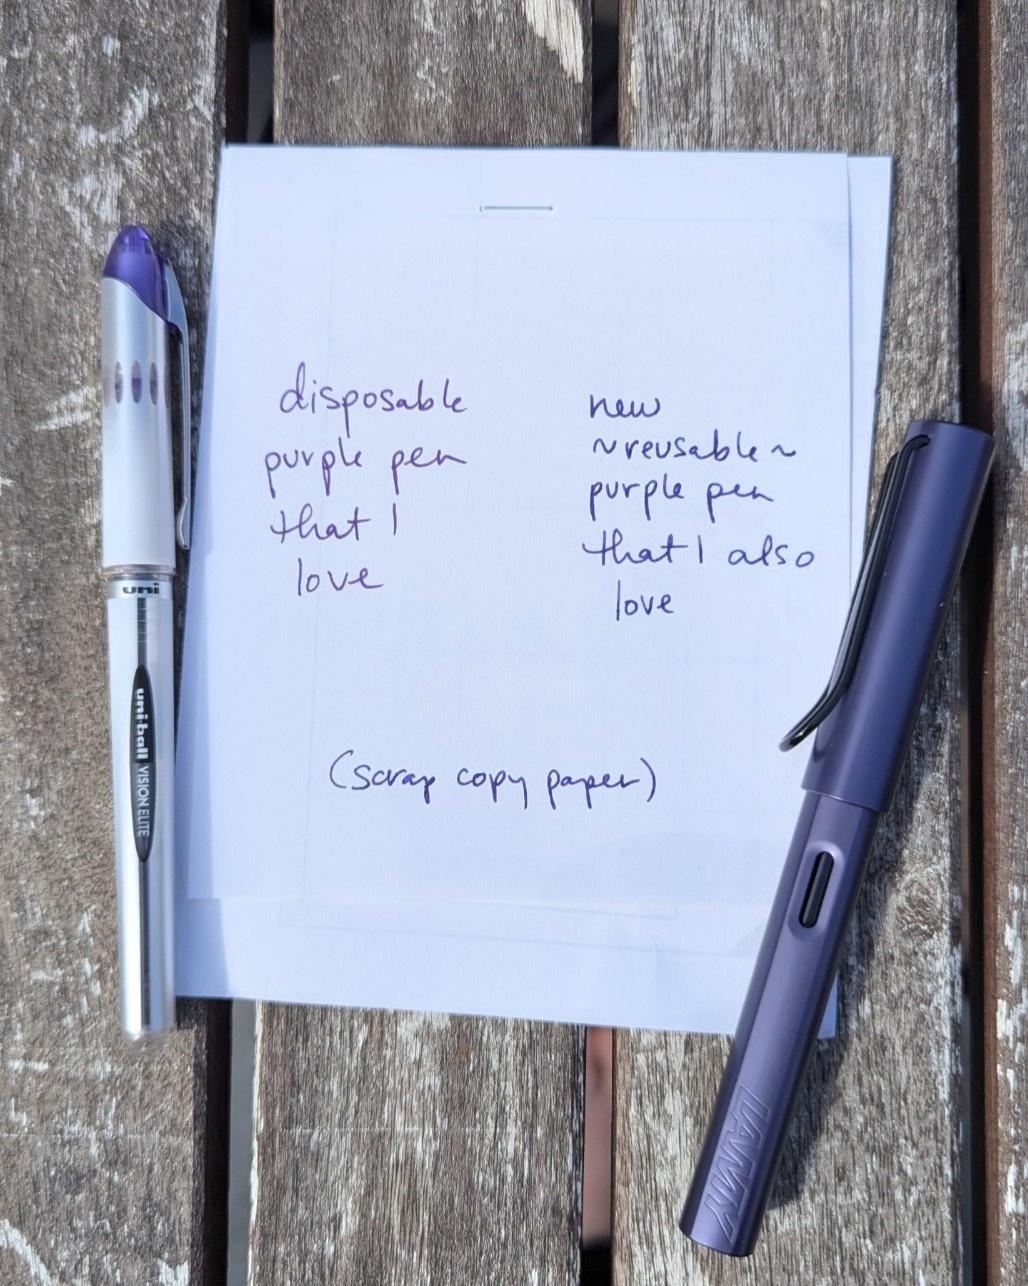 disposable
purple pen
that I
love
new
~reusable~
purple pen
that I also
love
(scrap copy paper)
uni
uni-ball VISION ELITE
LAMY